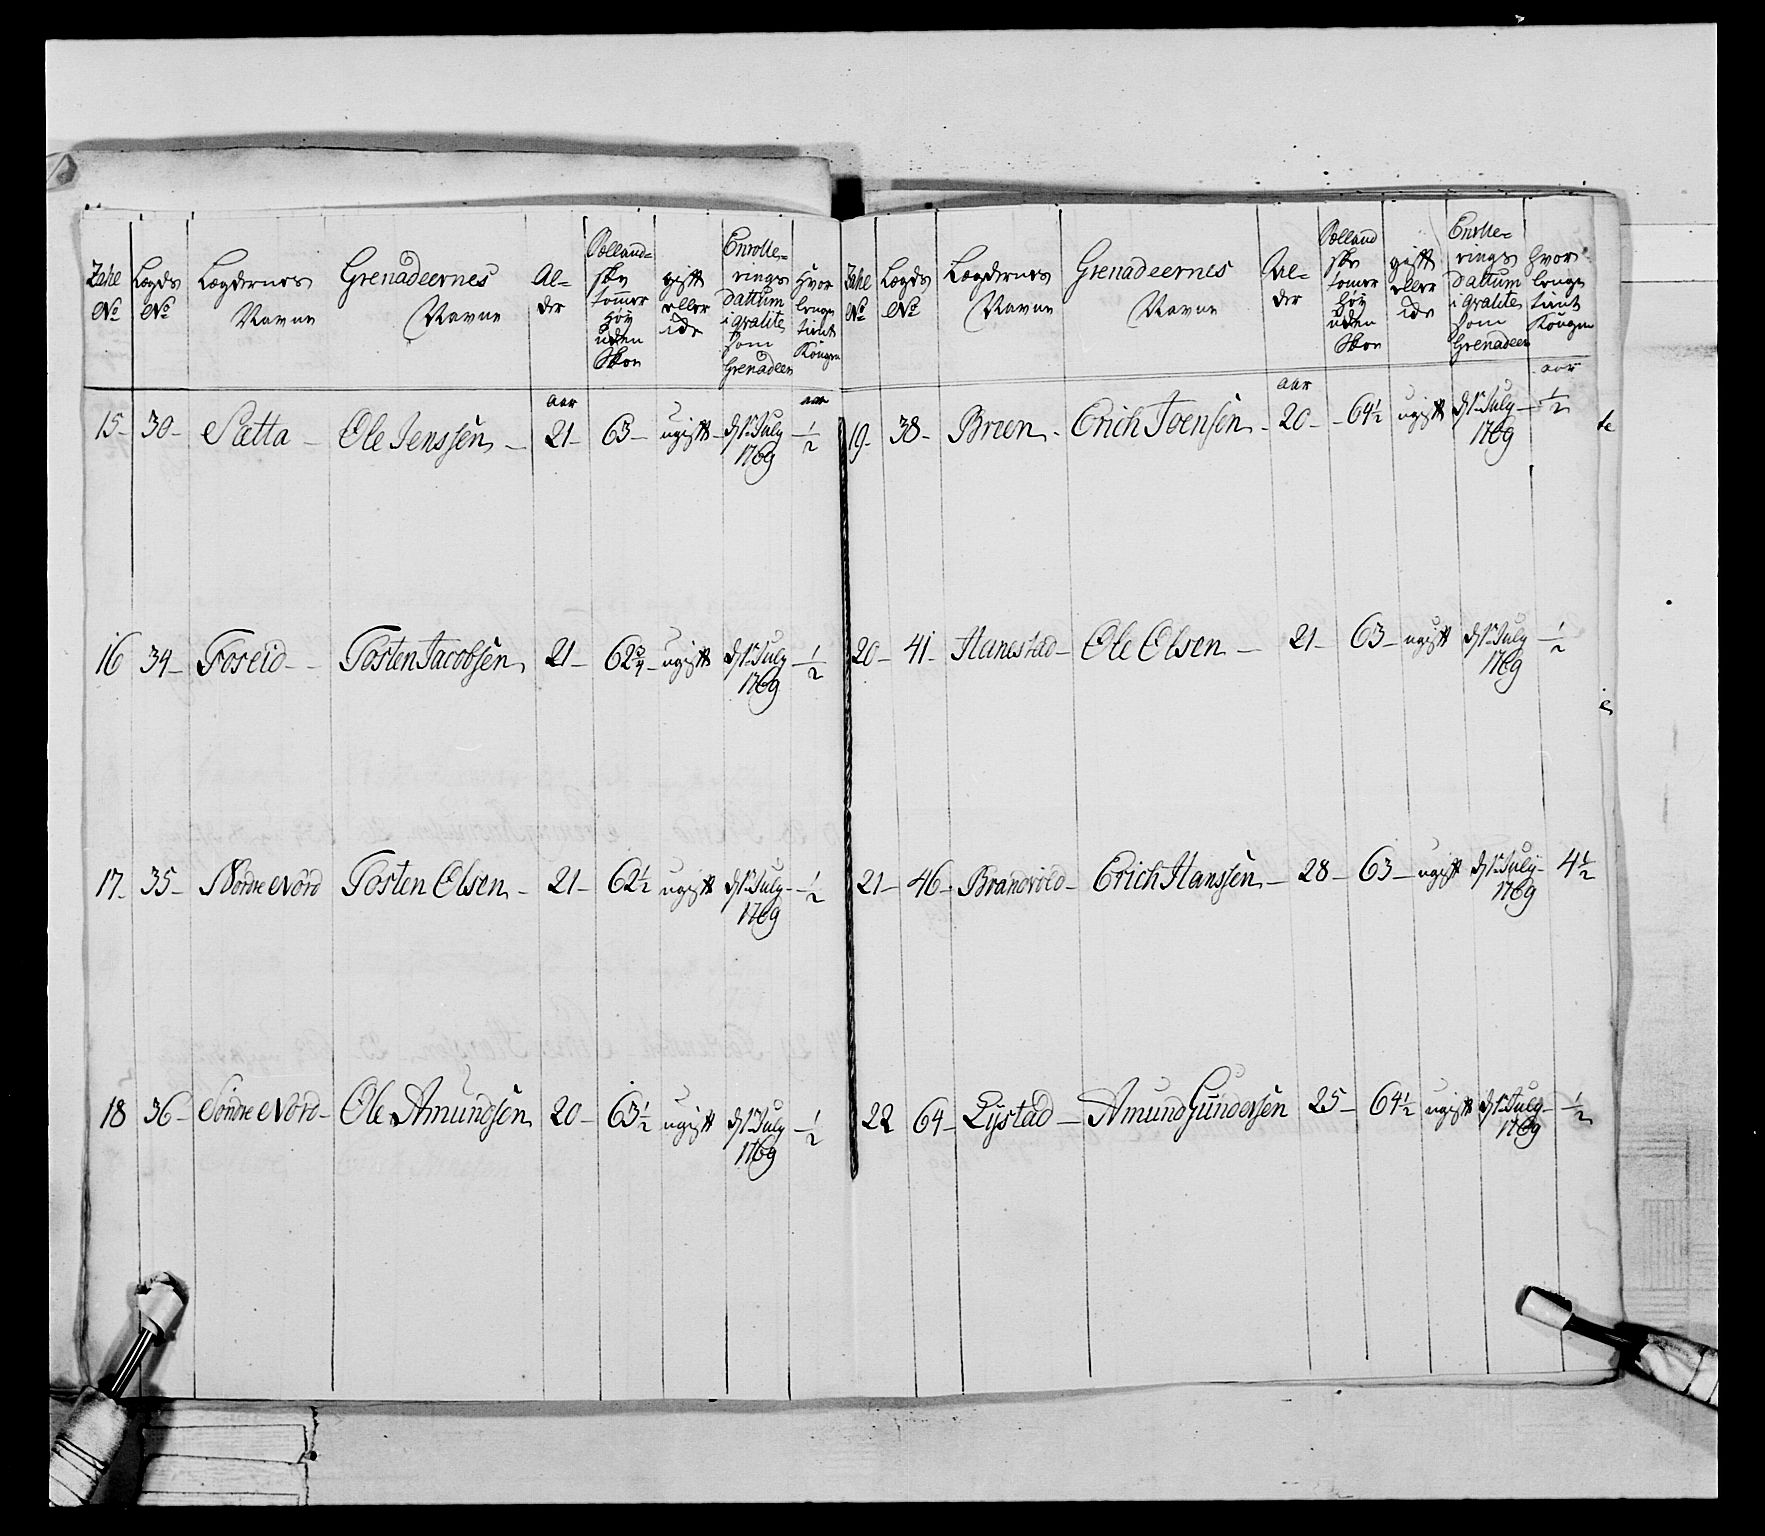 Zahl No
Lægds No
Lægdernes Navne
Grenadeernes Navne
Al-
der
Sælland-
ske
tomer
höy
uden
Skoe
gift
eller
ide
Enrolle-
rings
dattum
i qvalite
som
Grenadeer
Hvor
lenge
tient
Kongen
aar
aar
15- 30- Sætta - Ole Jenssen - 21- 63- ugift d 1ste July 1769 ½
16 34- Foseid - Tosten Jacobsen 21- 62¾- ugift d 1ste July 1769 ½
17- 35- Nordre Nord Tosten Olsen - 21- 62½ ugift d 1ste July 1769 ½
18 36- Söndre Nord- Ole Amundsen 20- 63½ ugift d 1ste July 1769 ½
Zahl No
Lægds No
Lægdernes Navne
Grenadeernes Navne
Al-
der
Sælland
ske
tomer
höy
uden
Skoe
gift
eller
ide
Enrolle-
rings
dattum
i qvalite
som
Grenadeer
hvor
lenge
tient
Kongen
aar
aar
19- 38- Breen - Erich Joensen - 20- 64½ ugift d 1ste July 1769 ½
20- 41- Hanestad- Ole Olsen - 21- 63- ugift d 1ste July 1769 ½
21- 46- Brandvold- Erich Hanssen - 28- 63- ugift d 1ste July 1769 4½
22 64- Lystad - Amund Gundersen 25- 64½ ugift d 1ste July 1769 ½